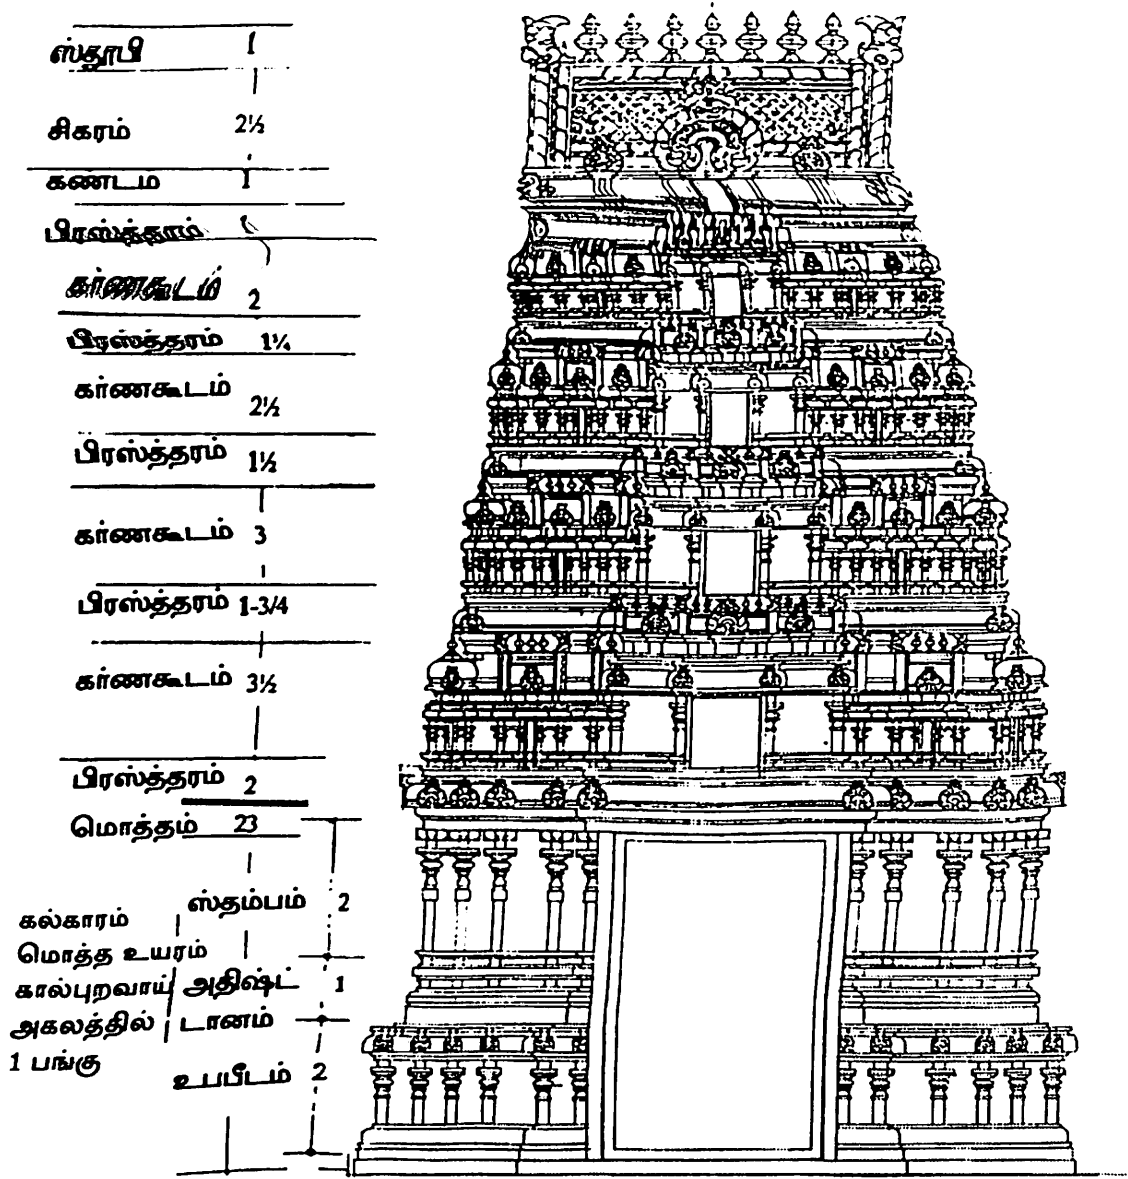 ஸ்தூபி 1
சிகரம் 2½
கணடம 1
பிரஸ்த்தரம் 1
கர்ணகூடம் 2
பிரஸ்த்தரம் 1¼
கர்ணகூடம் 2½
பிரஸ்த்தரம் 1½
கர்ணகூடம் 3
பிரஸ்த்தரம் 1-3/4
கர்ணகூடம் 3½
பிரஸ்த்தரம் 2
மொத்தம் 23
ஸ்தம்பம் 2
கல்காரம்
மொத்த உயரம்
கால்புறவாய் அதிஷ்ட் 1
அகலத்தில் டானம்
1 பங்கு
உபபீடம் 2